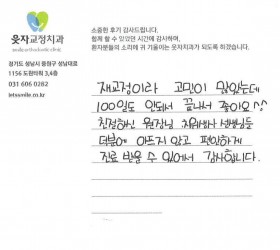 웃자교정치과
소중한 후기 감사드립니다.
함께 할 수 있었던 시간에 감사하며,
환자분들의 소리에 귀 기울이는 웃자치과가 되도록 하겠습니다.
경기도 성남시 중원구 성남대로
1156 도원타워 3,4층
031 606 0282
letsmile.co.kr
재교정이라 고민이 많았는데
100일도 안되서 끝나서 좋아요^^
친절하신 원장님 치위생사 선생님들
덕분에 아프지 않고 편안하게
진료 받을 수 있어서 감사합니다.